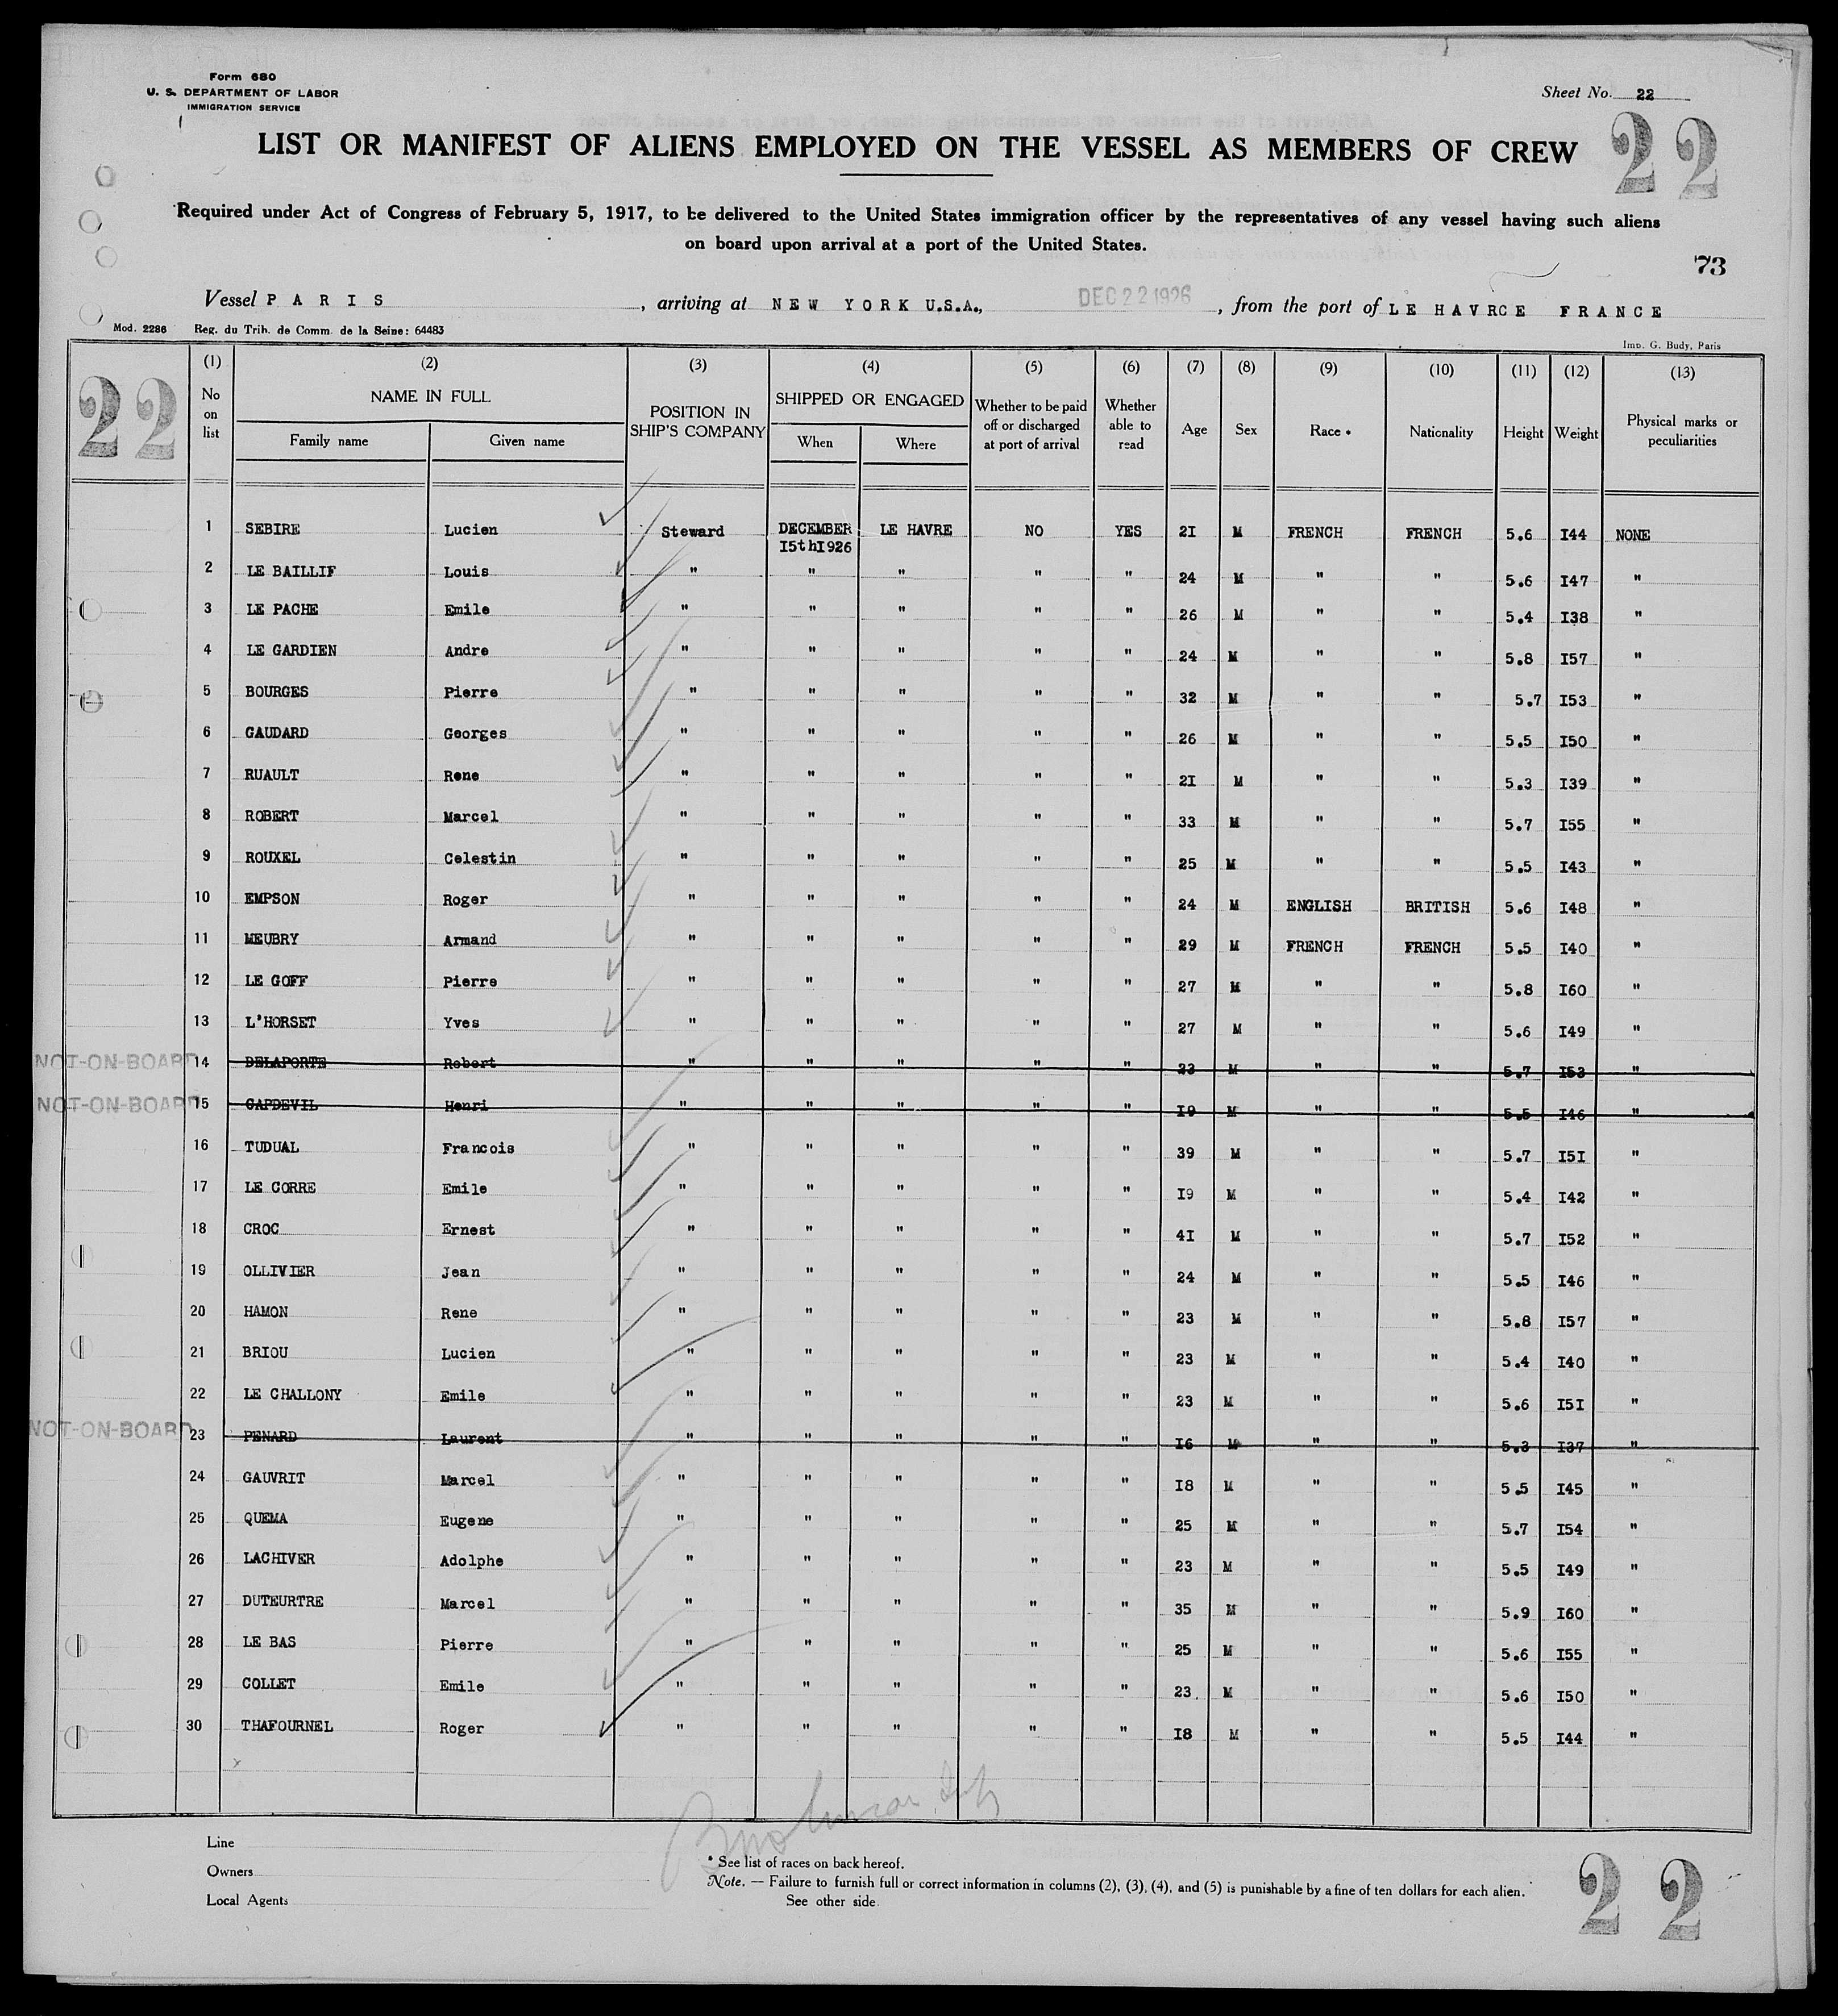 Form 680
U. S. DEPARTMENT OF LABOR
IMMIGRATION SERVICE
Sheet No. 22
22
LIST OR MANIFEST OF ALIENS EMPLOYED ON THE VESSEL AS MEMBERS OF CREW
Required under Act of Congress of February 5, 1917, to be delivered to the United States immigration officer by the representatives of any vessel having such aliens
on board upon arrival at a port of the United States.
73
Vessel PARIS, arriving at NEW YORK U.S.A., DEC 22 1926, from the port of LE HAVRCE FRANCE
Mod. 2286 Reg. du Trib. de Comm. de la Seine: 64483
Imp. G. Budy, Paris
22
(1) (2) (3) (4) (5) (6) (7) (8) (9) (10) (11) (12) (13)
No on list NAME IN FULL Family name Given name POSITION IN SHIP'S COMPANY SHIPPED OR ENGAGED When Where Whether to be paid off or discharged at port of arrival Whether able to read Age Sex Race * Nationality Height Weight Physical marks or peculiarities
1 SEBIRE Lucien Steward DECEMBER I5thI926 LE HAVRE NO YES 2I M FRENCH FRENCH 5.6 I44 NONE
2 LE BAILLIF Louis " " " " " 24 M " " 5.6 I47 "
3 LE PACHE Emile " " " " " 26 M " " 5.4 I38 "
4 LE GARDIEN Andre " " " " " 24 M " " 5.8 I57 "
5 BOURGES Pierre " " " " " 32 M " " 5.7 I53 "
6 GAUDARD Georges " " " " " 26 M " " 5.5 I50 "
7 RUAULT Rene " " " " " 2I M " " 5.3 I39 "
8 ROBERT Marcel " " " " " 33 M " " 5.7 I55 "
9 ROUXEL Celestin " " " " " 25 M " " 5.5 I43 "
10 EMPSON Roger " " " " " 24 M ENGLISH BRITISH 5.6 I48 "
11 MEUBRY Armand " " " " " 29 M FRENCH FRENCH 5.5 I40 "
12 LE GOFF Pierre " " " " " 27 M " " 5.8 I60 "
13 L'HORSET Yves " " " " " 27 M " " 5.6 I49 "
NOT-ON-BOARD 14 DELAPORTE Robert " " " " " 23 M " " 5.7 I53 "
NOT-ON-BOARD 15 CAPDEVIL Henri " " " " " I9 M " " 5.5 I46 "
16 TUDUAL Francois " " " " " 39 M " " 5.7 I5I "
17 LE CORRE Emile " " " " " I9 M " " 5.4 I42 "
18 CROC Ernest " " " " " 4I M " " 5.7 I52 "
19 OLLIVIER Jean " " " " " 24 M " " 5.5 I46 "
20 HAMON Rene " " " " " 23 M " " 5.8 I57 "
21 BRIOU Lucien " " " " " 23 M " " 5.4 I40 "
22 LE CHALLONY Emile " " " " " 23 M " " 5.6 I5I "
NOT-ON-BOARD 23 PENARD Laurent " " " " " I6 M " " 5.3 I37 "
24 GAUVRIT Marcel " " " " " I8 M " " 5.5 I45 "
25 QUEMA Eugene " " " " " 25 M " " 5.7 I54 "
26 LACHIVER Adolphe " " " " " 23 M " " 5.5 I49 "
27 DUTEURTRE Marcel " " " " " 35 M " " 5.9 I60 "
28 LE BAS Pierre " " " " " 25 M " " 5.6 I55 "
29 COLLET Emile " " " " " 23 M " " 5.6 I50 "
30 THAFOURNEL Roger " " " " " I8 M " " 5.5 I44 "
Line
Owners
Local Agents
* See list of races on back hereof.
Note. — Failure to furnish full or correct information in columns (2), (3), (4), and (5) is punishable by a fine of ten dollars for each alien.
See other side.
22